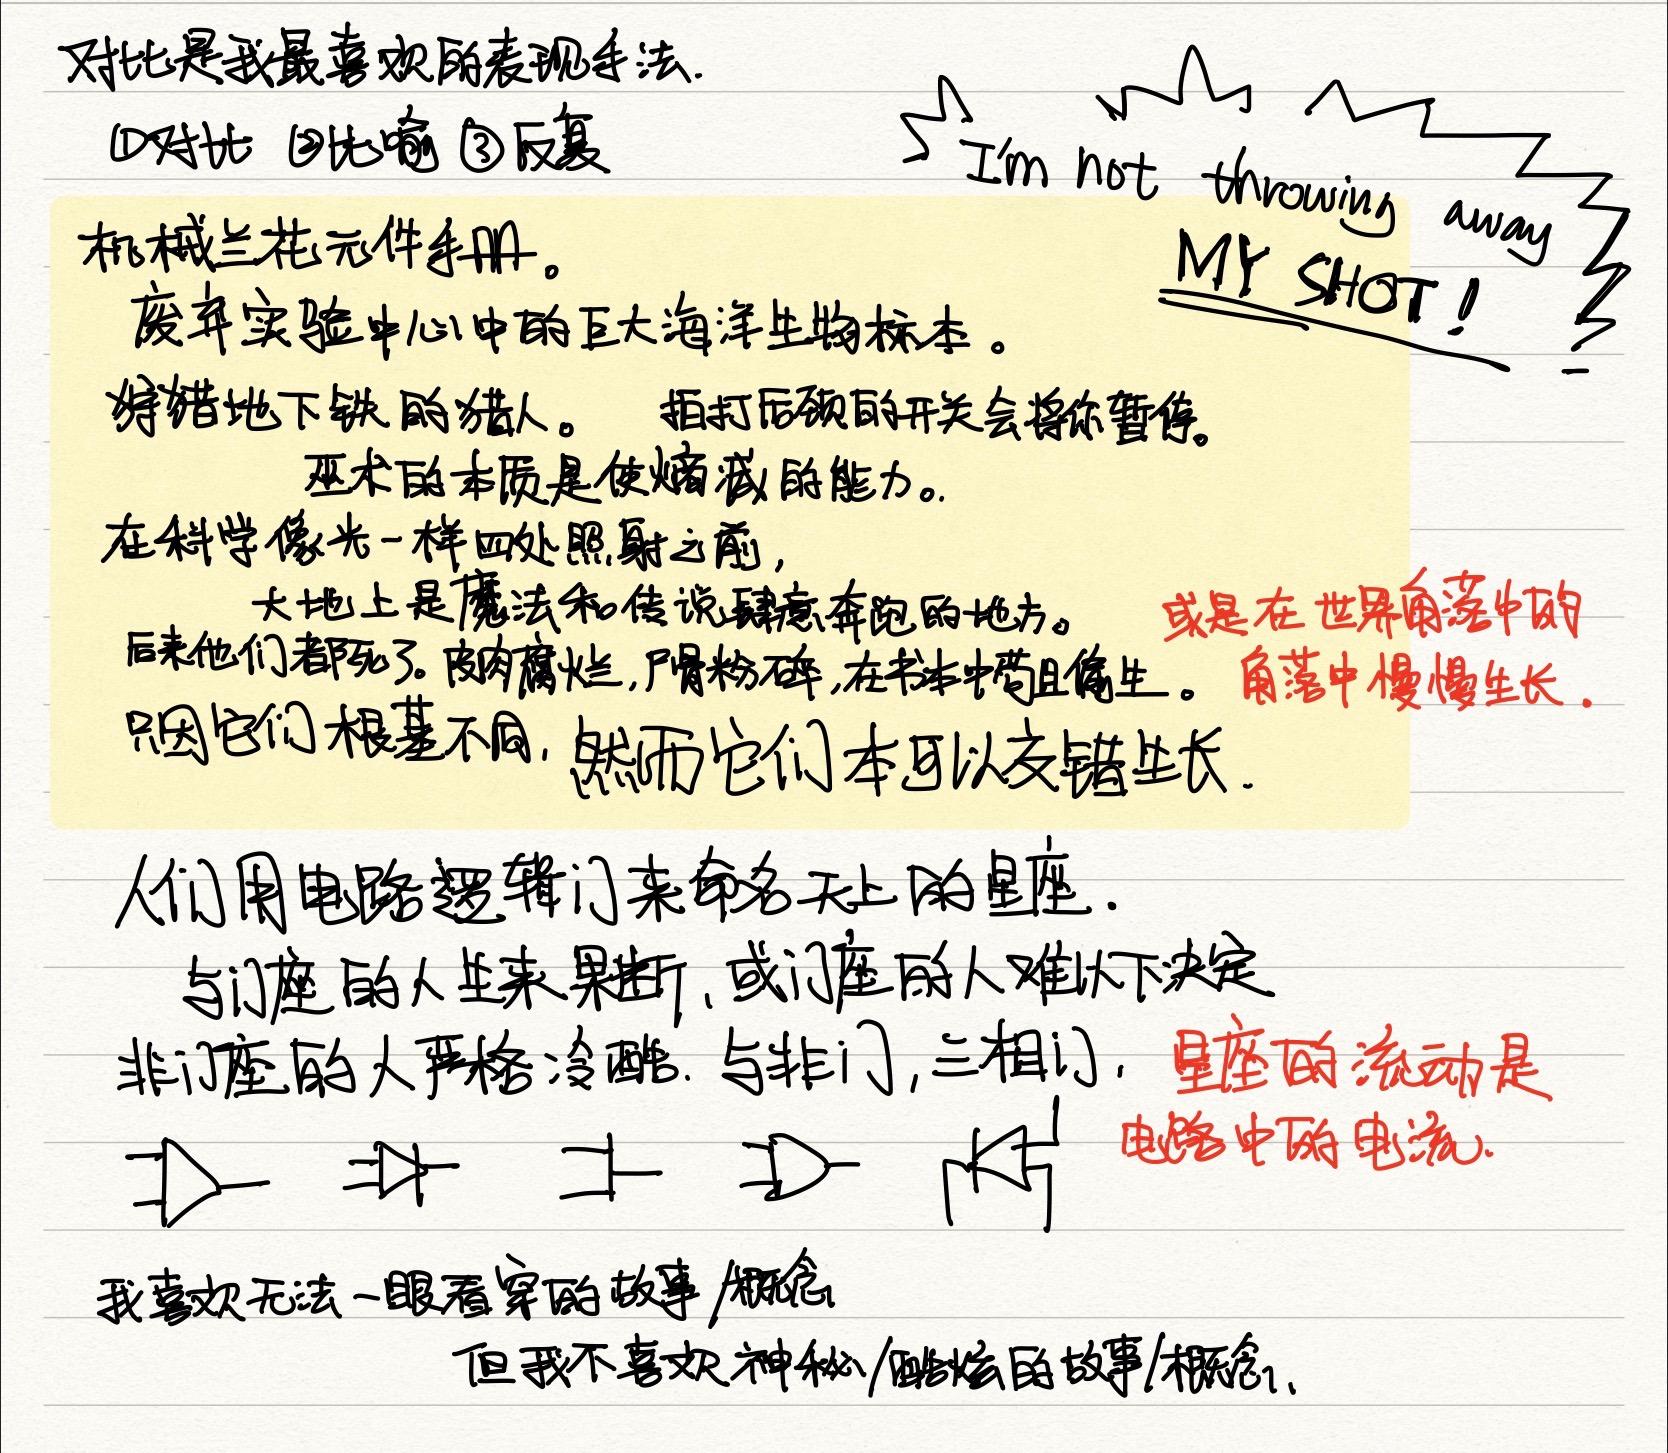 对比是我最喜欢的表现手法.
①对比 ②比喻 ③反复
I'm not throwing away
MY SHOT!
机械兰花元件手册。
废弃实验中心中的巨大海洋生物标本。
狩猎地下铁的猎人。 拍打后颈的开关会将你暂停。
巫术的本质是使熵减的能力。
在科学像光一样四处照射之前,
大地上是魔法和传说肆意奔跑的地方。
后来他们都死了。皮肉腐烂,尸骨粉碎,在书本中苟且偷生。
或是在世界角落中的
角落中慢慢生长.
只因它们根基不同,然而它们本可以交错生长.
人们用电路逻辑门来命名天上的星座.
与门座的人生来果断,或门座的人难以下决定
非门座的人严格冷酷.与非门,三相门,
星座的流动是
电路中的电流.
我喜欢无法一眼看穿的故事/概念
但我不喜欢神秘/酷炫的故事/概念.